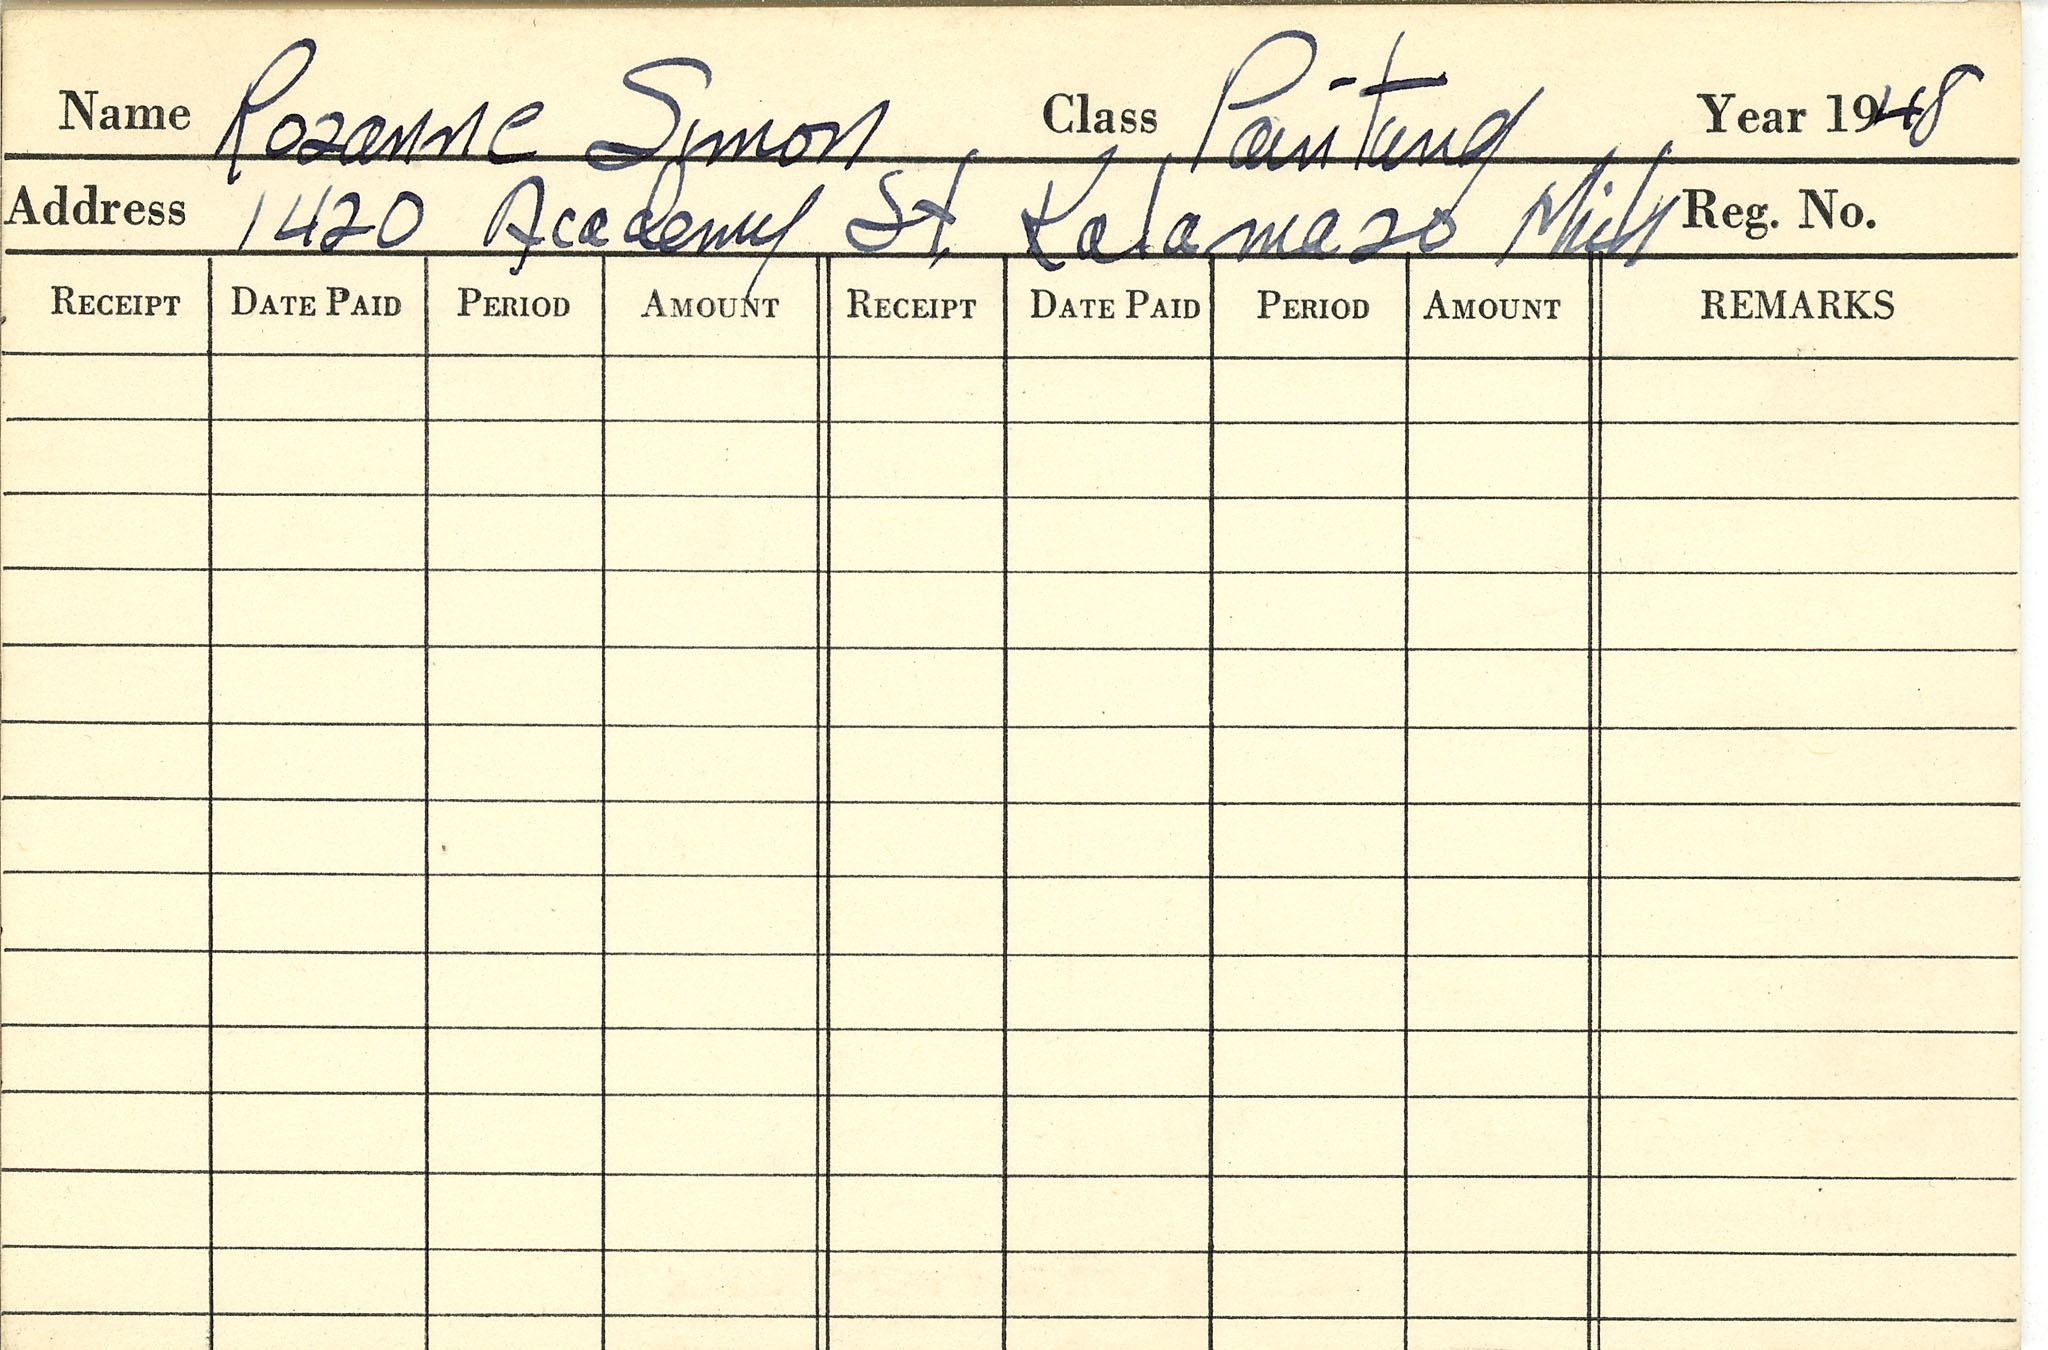 Name Rozanne Simon Class Painting Year 1948
Address 1420 Academy St, Kalamazo Mich Reg. No.
RECEIPT DATE PAID PERIOD AMOUNT RECEIPT DATE PAID PERIOD AMOUNT REMARKS